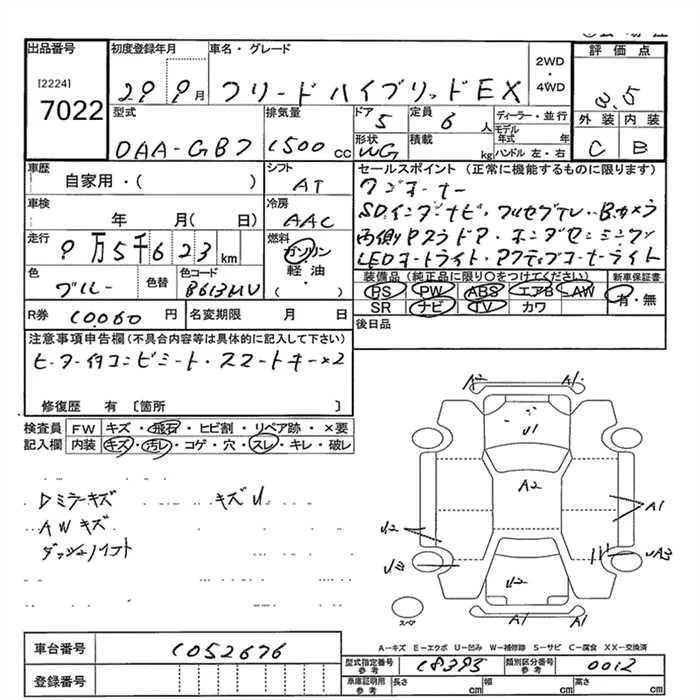 出品番号
[2224]
7022
初度登録年月
29年 9月
車名・グレード
フリードハイブリッドEX
2WD
・
4WD
評価点
3.5
外装 内装
C B
型式
DAA-GB7
排気量
1500 cc
ドア 5
形状 WG
定員 6 人
積載 kg
ディーラー・並行
モデル年式 年
ハンドル 左・右
車歴
自家用・( )
シフト
AT
車検
年 月( 日)
冷房
AAC
走行
9万5千623 km
燃料
ガソリン
軽油・
( )
色
ブルー
色替
色コード
B613MU
R券 10,060 円
名変期限 月 日
セールスポイント (正常に機能するものに限ります)
ワンオーナー
SDインターナビ・フルセグTV・Bカメラ
両側Pスラドア・ホンダセンシング
LEDオートライト・アクティブコーナーライト
装備品(純正品に限り○をつけてください)
新車保証書
PS PW ABS エアB AW
SR ナビ TV カワ
有・無
後日品
注意事項申告欄(不具合内容等は具体的に記入して下さい)
ヒーター付コンビシート・スマートキー×2
修復歴 有 [箇所 ]
検査員記入欄
FW キズ・飛石・ヒビ割・リペア跡・×要
内装 キズ・汚レ・コゲ・穴・スレ・キレ・破レ
Dミラーキズ キズU
AWキズ
A2 A1
U1
A2
A1
U2
U3 UA3
U2
A1 A1
スペア
A-キズ E-エクボ U-凹み W-補修跡 S-サビ C-腐食 XX-交換済
車台番号 1052676
登録番号
型式指定番号 参考 18395
類別区分番号 参考 0012
車庫証明用 参考 長さ cm 幅 cm 高さ cm